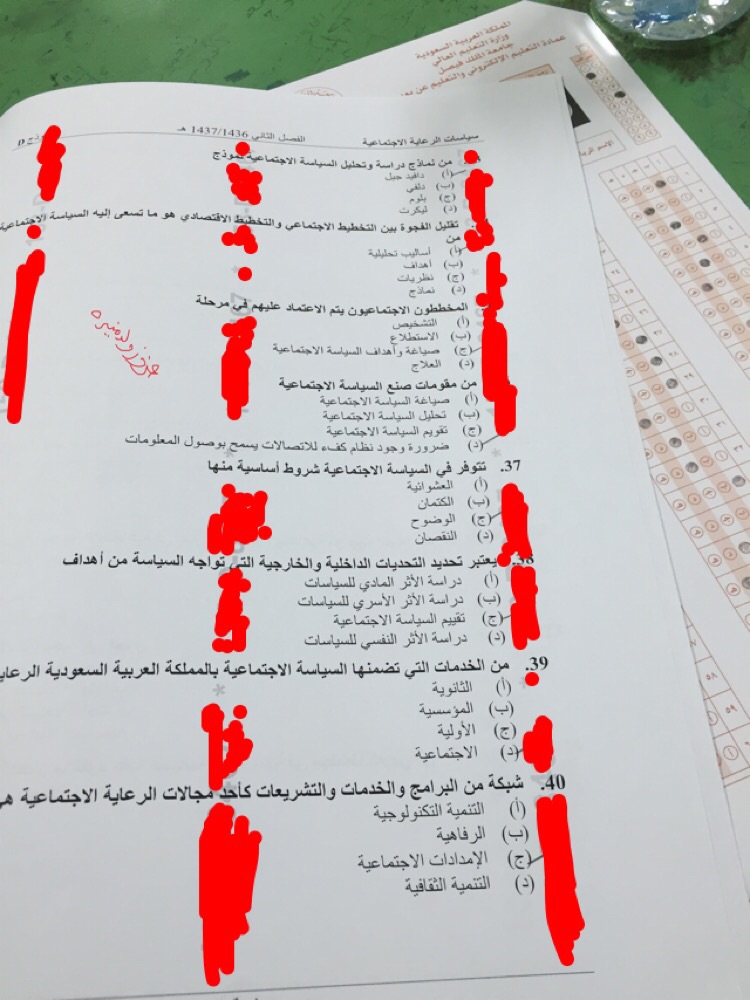 المملكة العربية السعودية
وزارة التعليم العالي
جامعة الملك فيصل
عمادة التعليم الإلكتروني والتعليم عن بعد
سياسات الرعاية الاجتماعية الفصل الثاني 1437/1436 هـ
من نماذج دراسة وتحليل السياسة الاجتماعية نموذج
(أ) دافيد جيل
(ب) دلفي
(ج) بلوم
(د) ليكرت
تقليل الفجوة بين التخطيط الاجتماعي والتخطيط الاقتصادي هو ما تسعى إليه السياسة الاجتماعية
من
(أ) أساليب تحليلية
(ب) أهداف
(ج) نظريات
(د) نماذج
المخططون الاجتماعيون يتم الاعتماد عليهم في مرحلة
(أ) التشخيص
(ب) الاستطلاع
(ج) صياغة وأهداف السياسة الاجتماعية
(د) العلاج
من مقومات صنع السياسة الاجتماعية
(أ) صياغة السياسة الاجتماعية
(ب) تحليل السياسة الاجتماعية
(ج) تقويم السياسة الاجتماعية
(د) ضرورة وجود نظام كفء للاتصالات يسمح بوصول المعلومات
37. تتوفر في السياسة الاجتماعية شروط أساسية منها
(أ) العشوائية
(ب) الكتمان
(ج) الوضوح
(د) النقصان
38. يعتبر تحديد التحديات الداخلية والخارجية التي تواجه السياسة من أهداف
(أ) دراسة الأثر المادي للسياسات
(ب) دراسة الأثر الأسري للسياسات
(ج) تقييم السياسة الاجتماعية
(د) دراسة الأثر النفسي للسياسات
39. من الخدمات التي تضمنها السياسة الاجتماعية بالمملكة العربية السعودية
(أ) الثانوية
(ب) المؤسسية
(ج) الأولية
(د) الاجتماعية
40. شبكة من البرامج والخدمات والتشريعات كأحد مجالات الرعاية الاجتماعية
(أ) التنمية التكنولوجية
(ب) الرفاهية
(ج) الإمدادات الاجتماعية
(د) التنمية الثقافية